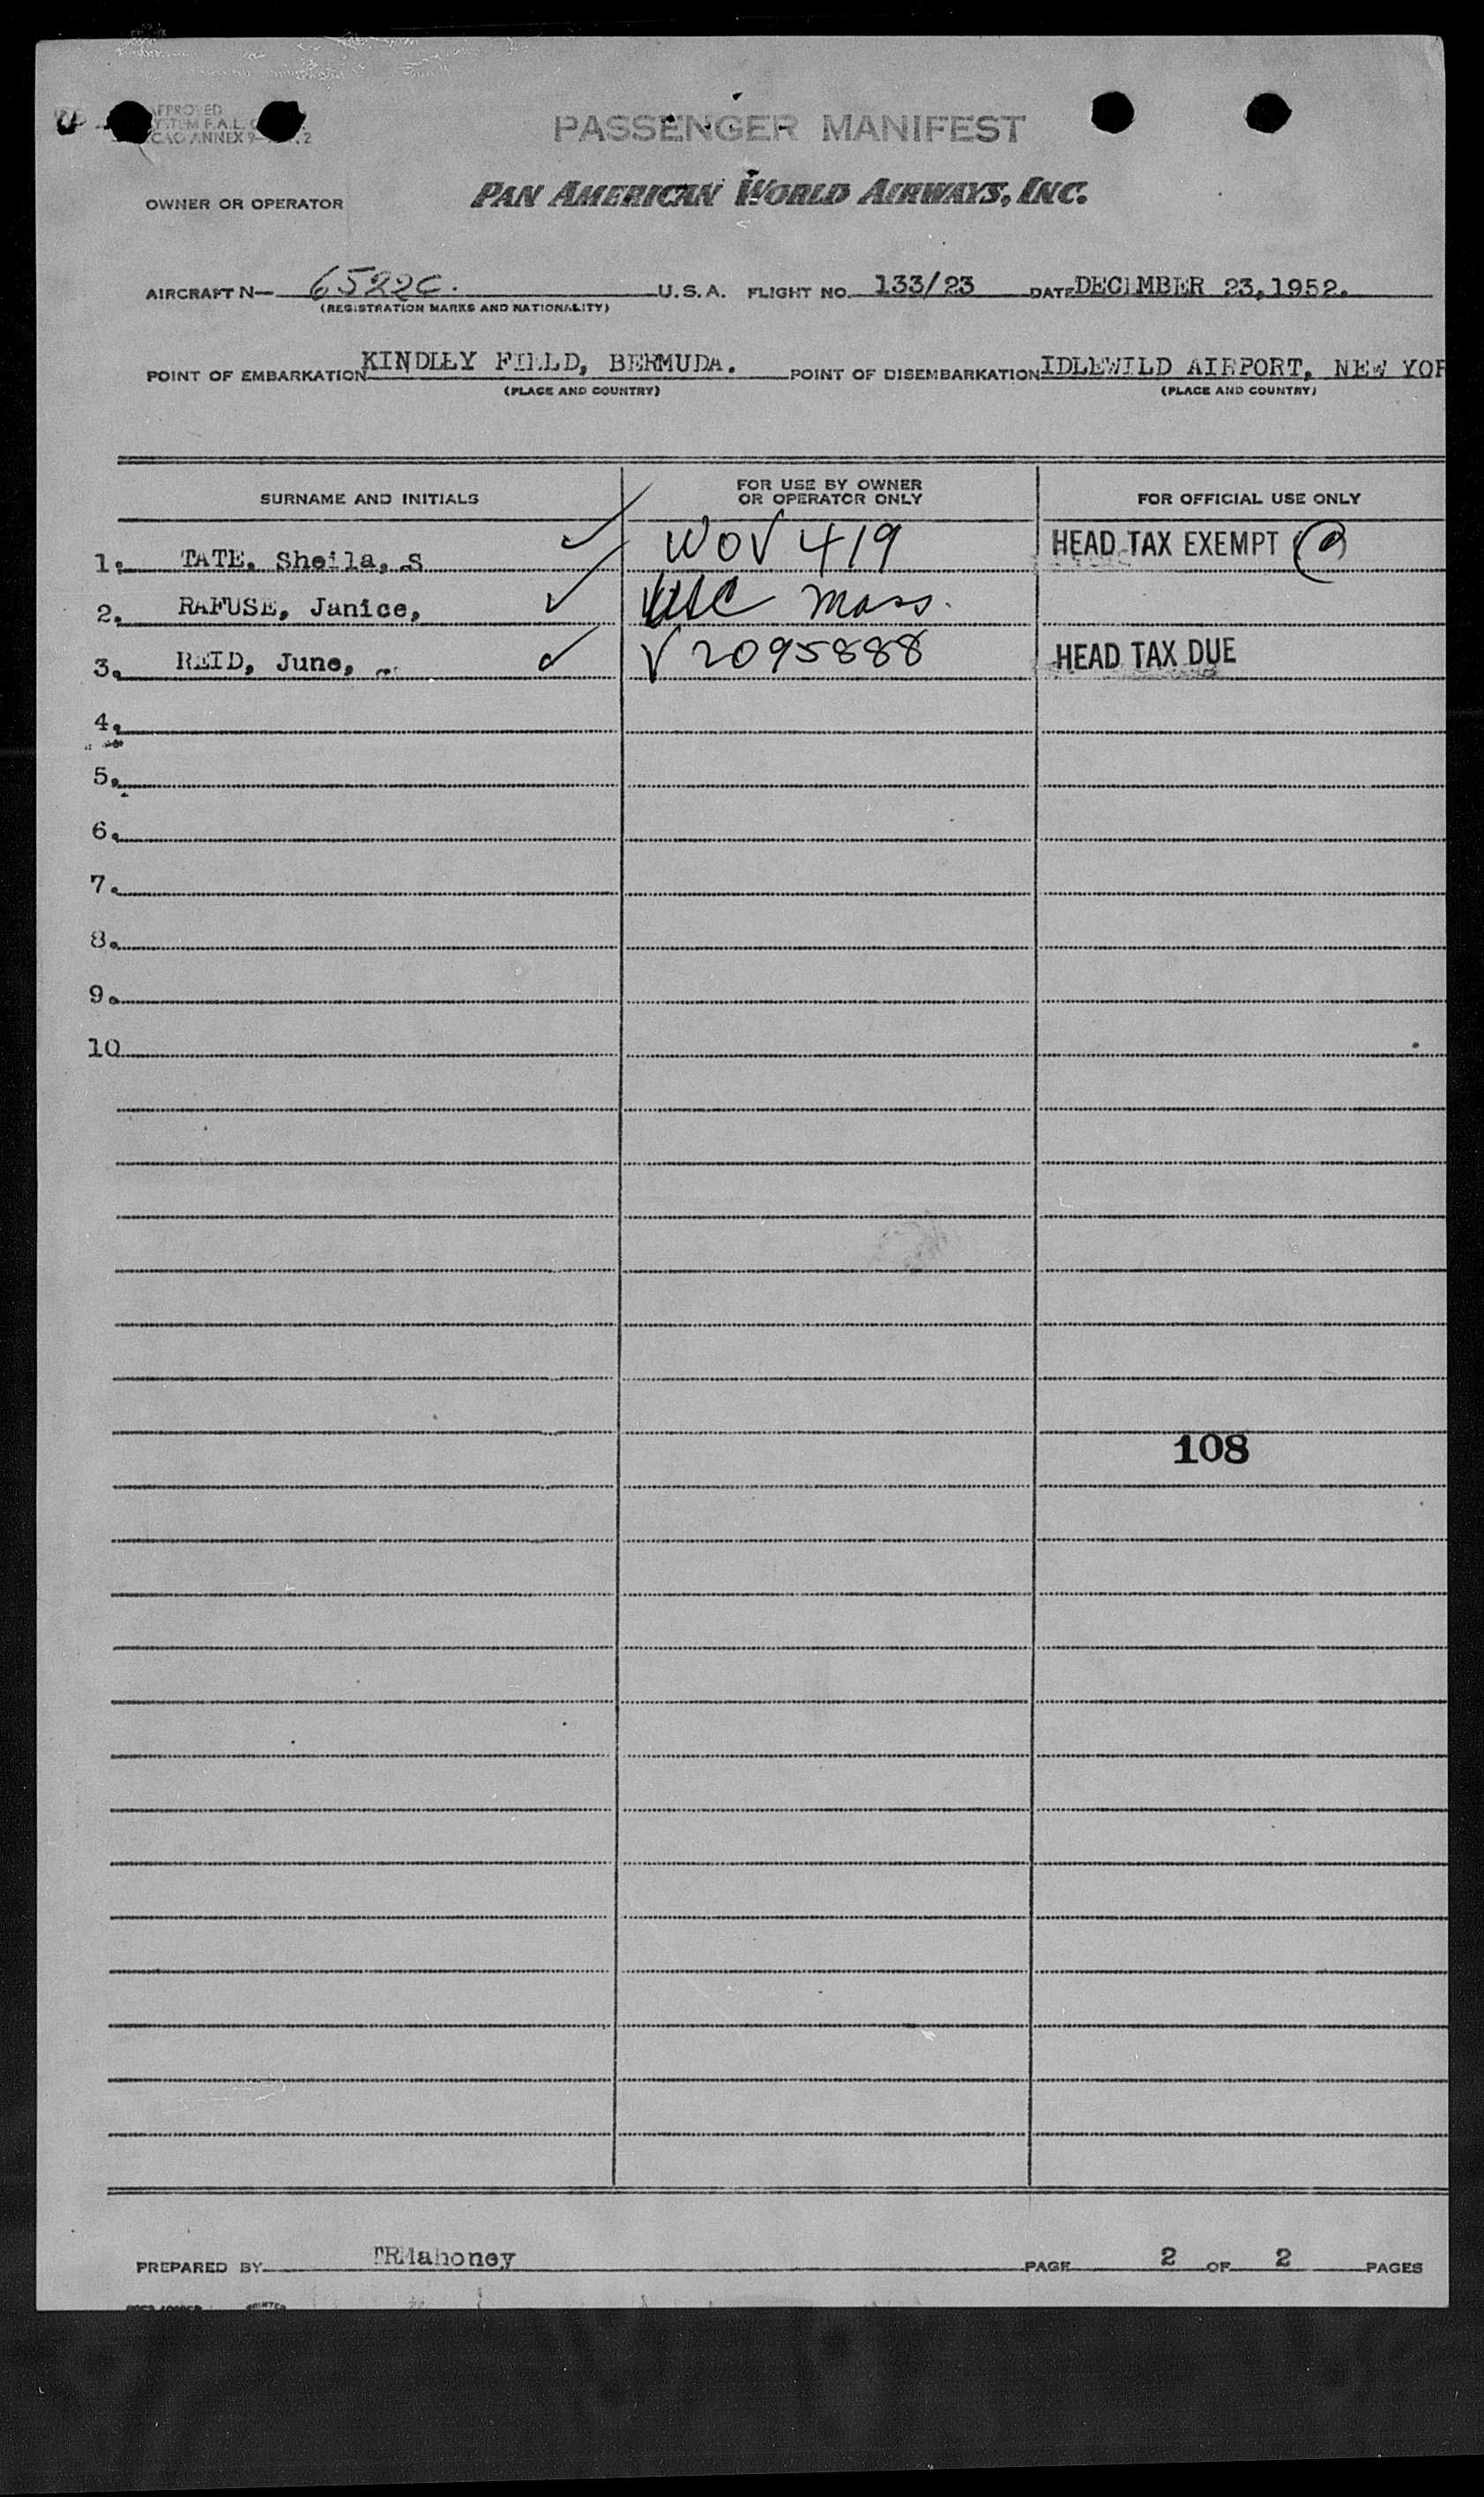 APPROVED
SYSTEM F.A.L.
ICAO ANNEX 9
PASSENGER MANIFEST
OWNER OR OPERATOR PAN AMERICAN WORLD AIRWAYS, INC.
AIRCRAFT N— 6522C. U.S.A. FLIGHT NO. 133/23 DATE DECEMBER 23, 1952.
(REGISTRATION MARKS AND NATIONALITY)
POINT OF EMBARKATION KINDLEY FIELD, BERMUDA. POINT OF DISEMBARKATION IDLEWILD AIRPORT, NEW YOR
(PLACE AND COUNTRY) (PLACE AND COUNTRY)
SURNAME AND INITIALS FOR USE BY OWNER OR OPERATOR ONLY FOR OFFICIAL USE ONLY
1. TATE, Sheila, S ✓ WOV 419 HEAD TAX EXEMPT
2. RAFUSE, Janice, ✓ USC Mass.
3. REID, June, ✓ V 2095888 HEAD TAX DUE
4.
5.
6.
7.
8.
9.
10
108
PREPARED BY TRMahoney PAGE 2 OF 2 PAGES